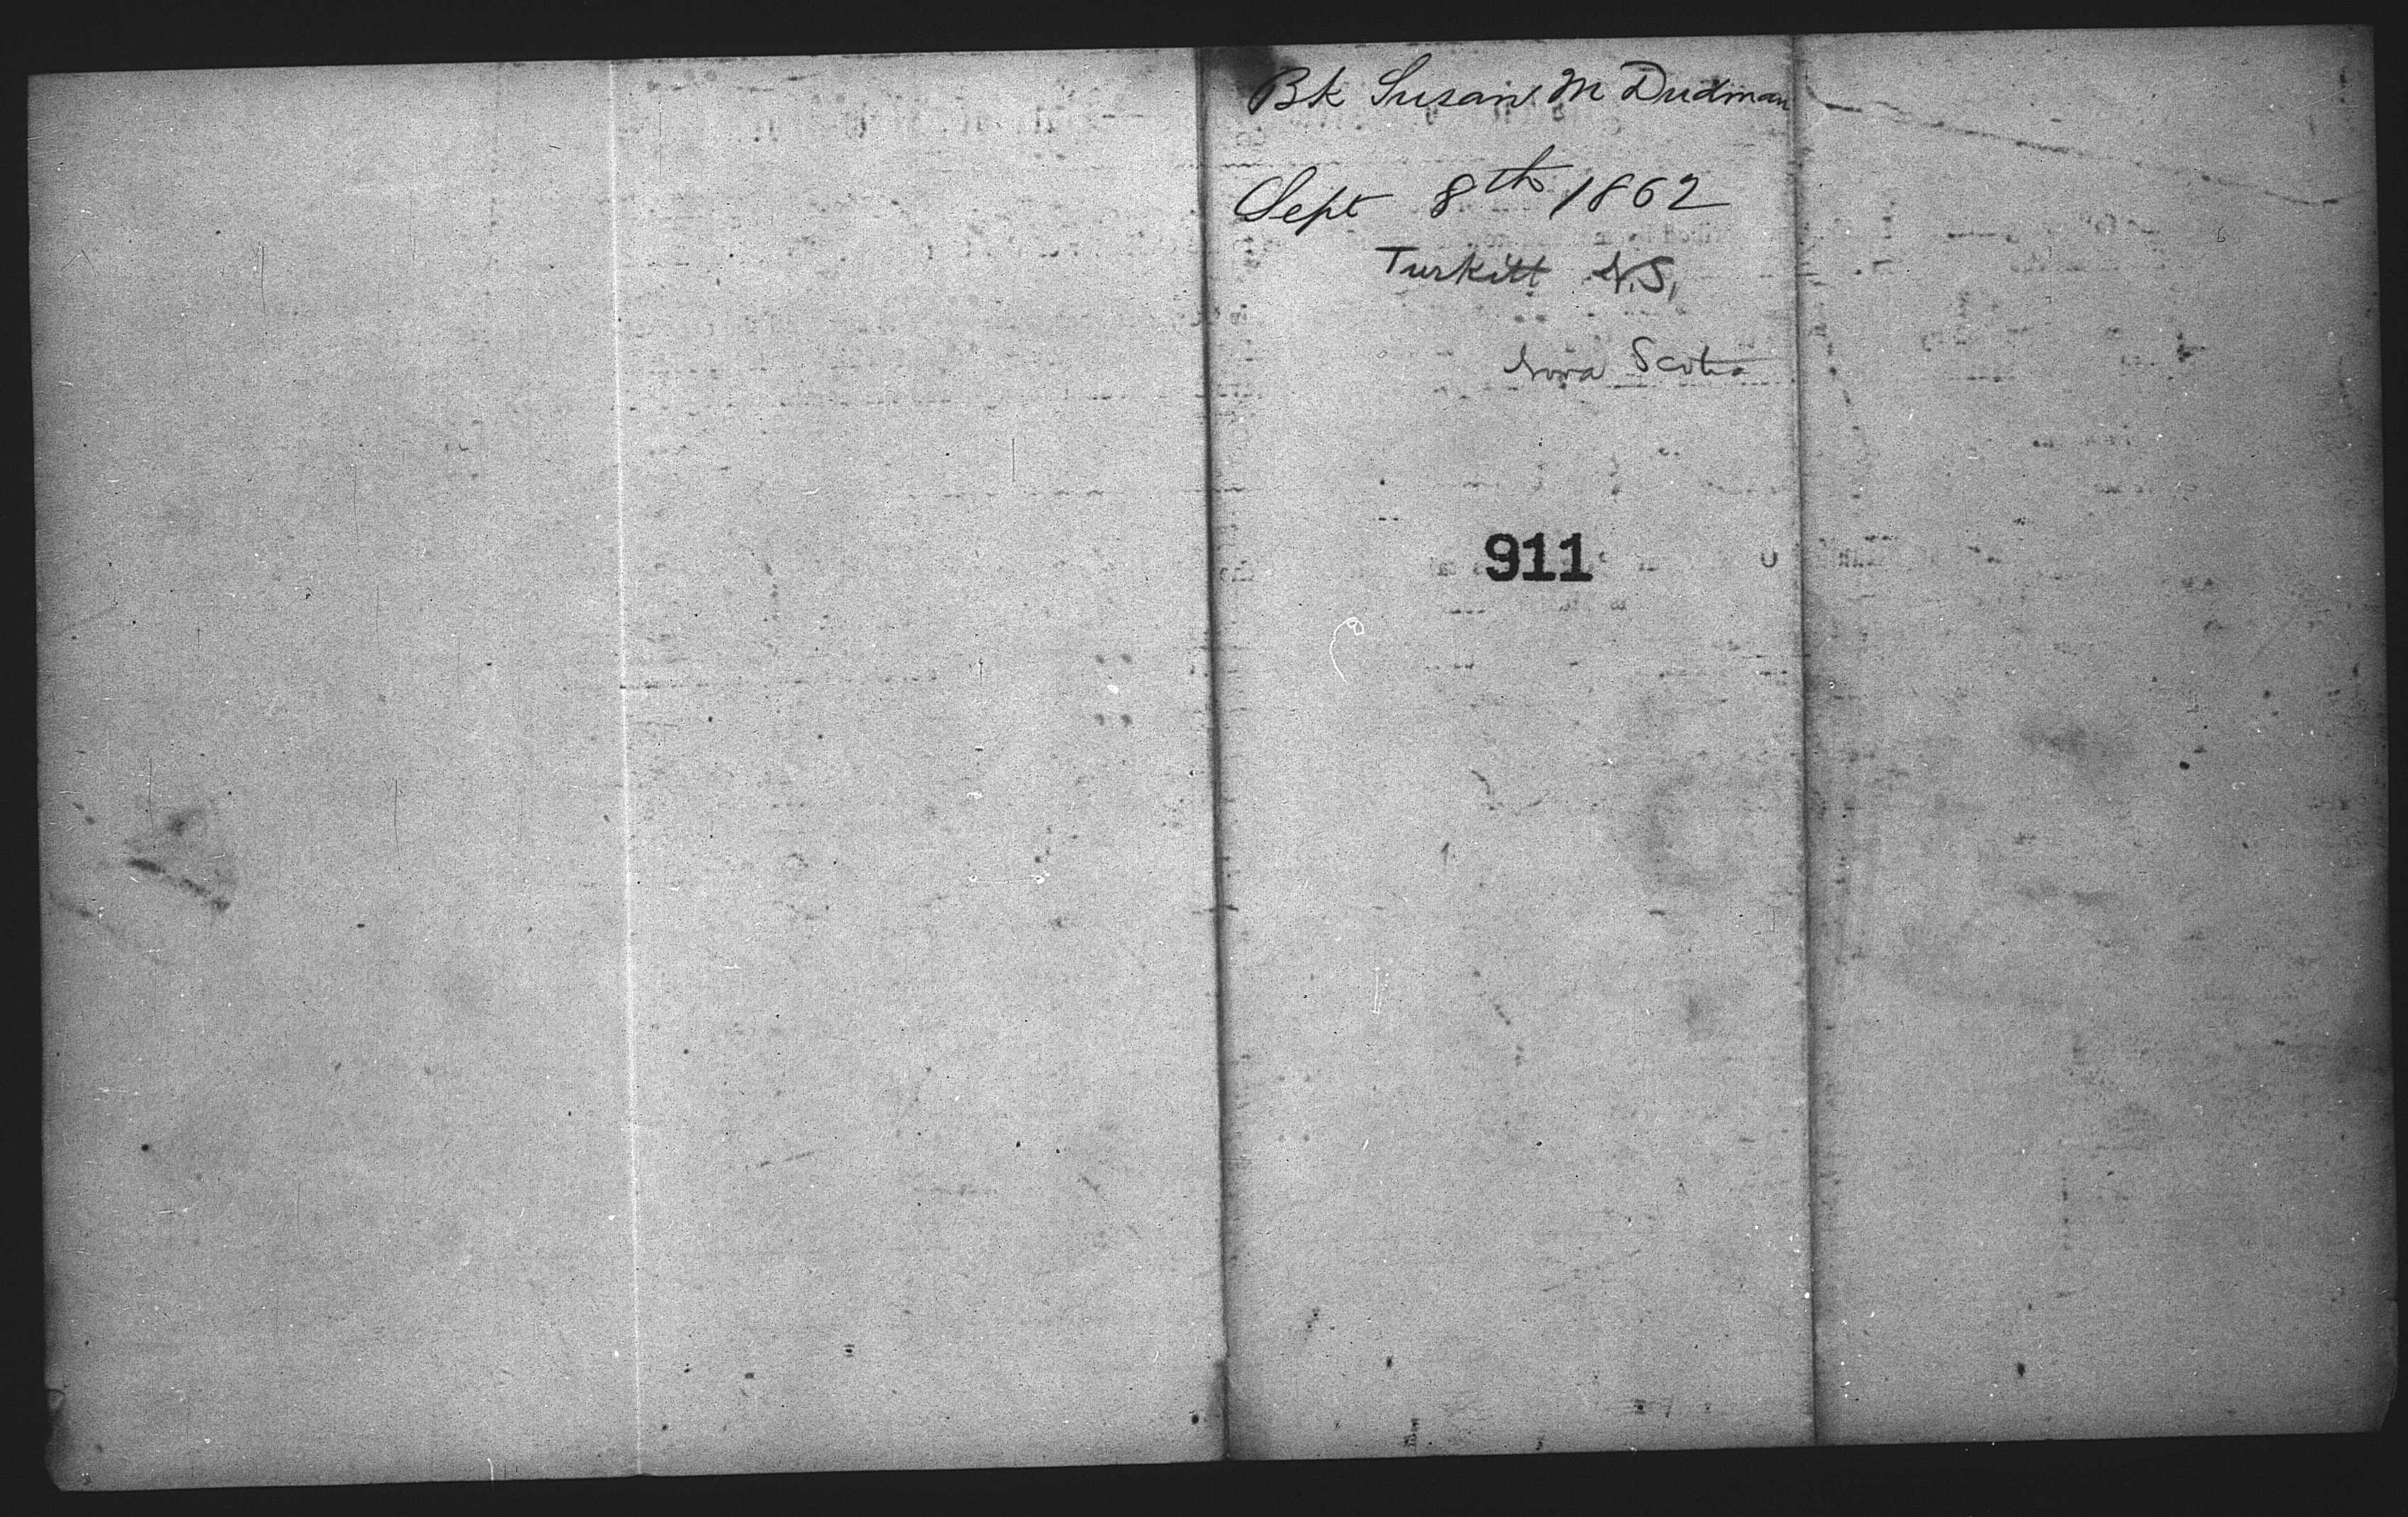 Bk Susan M Dudman
Sept 8th 1862
Turkitt N.S,
Nova Scotia
911